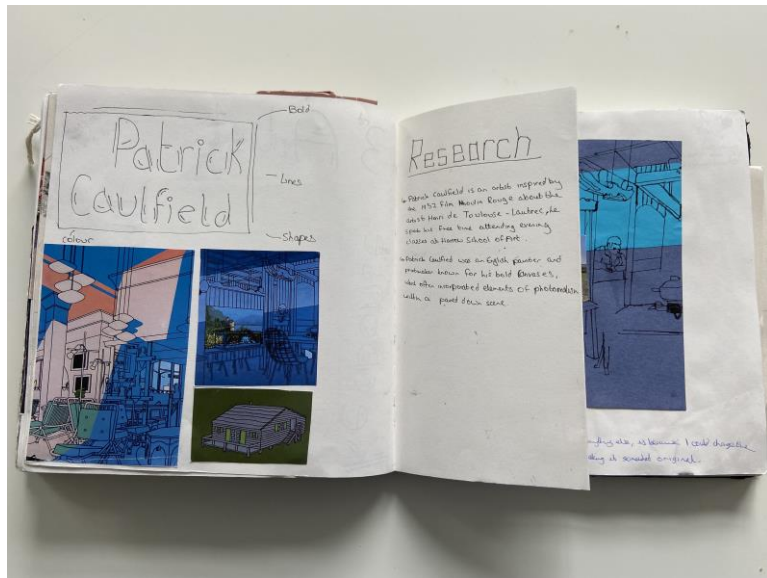 Patrick
Caulfield
Bold
Lines
Shapes
Colour
Research
Patrick Caulfield is an artist inspired by
the 1952 film Moulin Rouge about the
artist Henri de Toulouse-Lautrec, he
spent his free time attending evening
classes at Harrow School of Art.
Patrick Caulfield was an English painter and
printmaker known for his bold canvases,
which often incorporated elements of photorealism
with a pared down scene.
anything else, as because I could change the